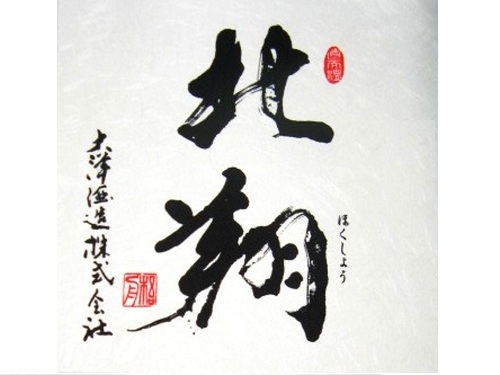 北翔
ほくしょう
大澤酒造株式会社